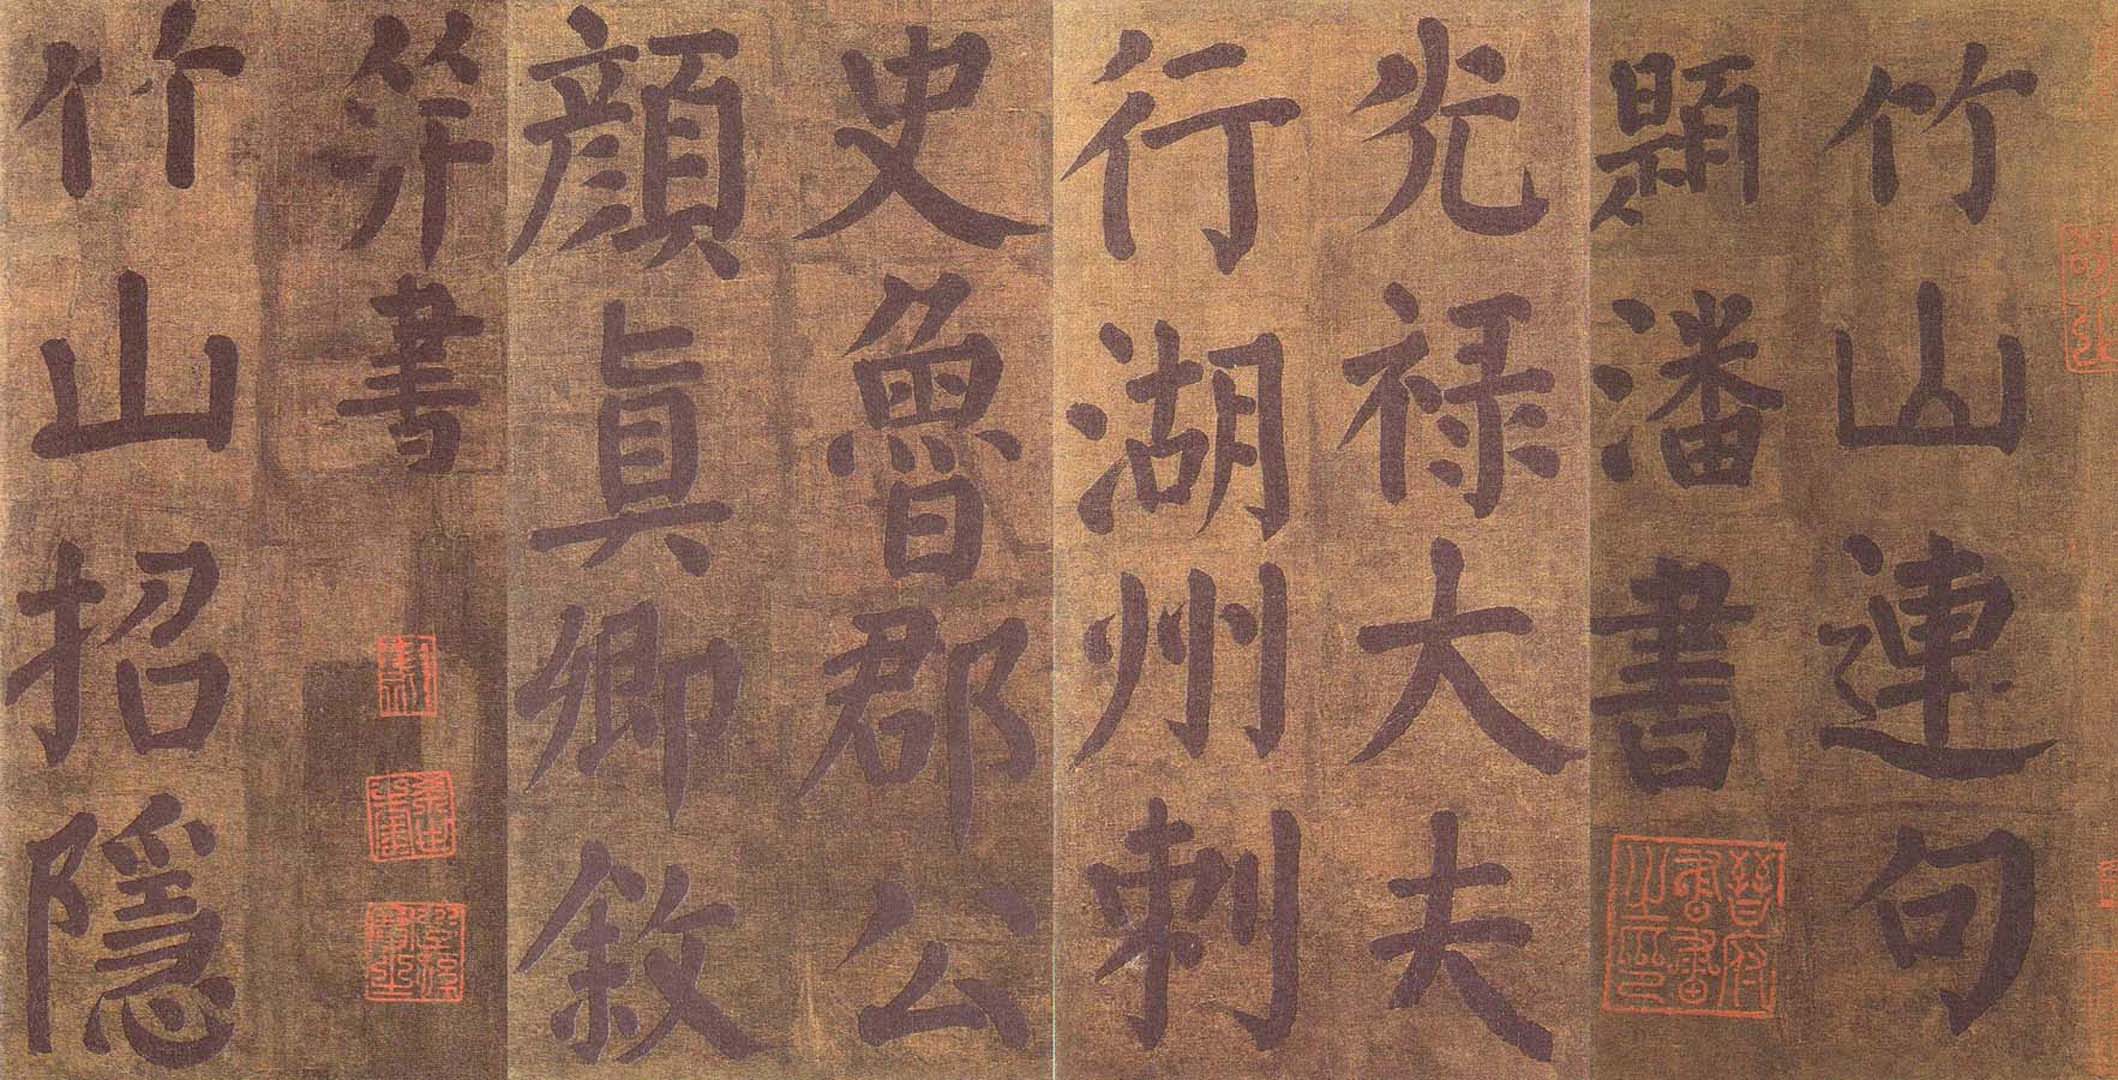 竹山連句
題潘書
光禄大夫
行湖州刺
史魯郡公
顏真卿敘
并書
竹山招隱